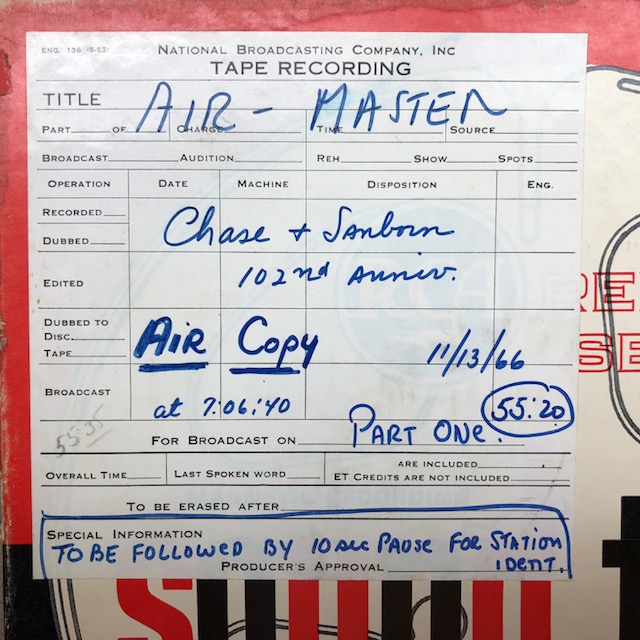 ENG. 136 (5-63)
NATIONAL BROADCASTING COMPANY, INC
TAPE RECORDING
TITLE AIR - MASTER
PART OF CHARGE TIME SOURCE
BROADCAST AUDITION REH. SHOW SPOTS
OPERATION DATE MACHINE DISPOSITION ENG.
RECORDED
DUBBED Chase + Sanborn
EDITED 102nd Anniv.
DUBBED TO
DISC.
TAPE AIR COPY 11/13/66
BROADCAST at 7:06:40 55:20
55:35
FOR BROADCAST ON PART ONE.
OVERALL TIME LAST SPOKEN WORD ARE INCLUDED
ET CREDITS ARE NOT INCLUDED
TO BE ERASED AFTER
SPECIAL INFORMATION
TO BE FOLLOWED BY 10 sec PAUSE FOR STATION
IDENT.
PRODUCER'S APPROVAL
RE
SE